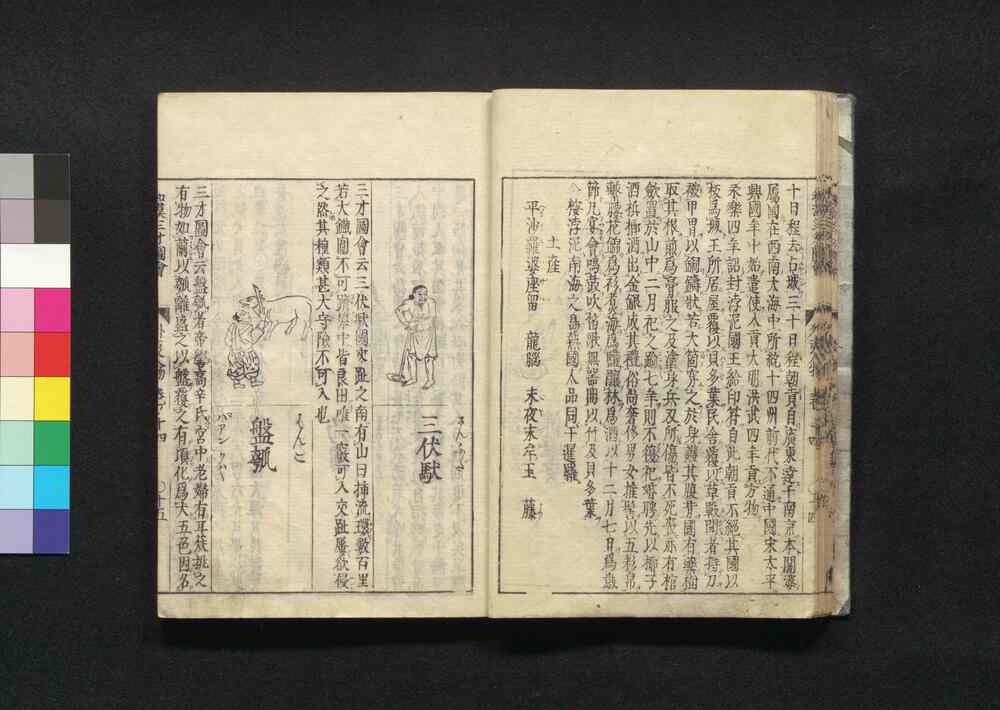 十日程去占城三十日程朝貢自廣東達于南京本闍婆
屬國在西南大海中所統十四州前代不通中國宋太平
興國年中始遣使入貢大明洪武四年貢方物
永樂四年詔封浮泥國王給印符自此朝貢不絕其國以
板爲城王所居屋覆以貝多葉民舍覆以草戰鬪者持刀
被甲胄以銅鑄狀若大筒穿之於身護其腹背國有藥樹
取其根煎爲膏服之及塗身兵刃所傷皆不死喪亦有棺
斂置於山中二月祀之踰七年則不復祀婚聘先以椰子
酒檳榔酒出金銀成其禮俗尚奢侈男女椎髻以五彩帛
繫腰花錦爲衫煑海爲鹽釀秫爲酒以十二月七日爲歲
節凡宴會鳴鼓吹笛歌舞器皿以竹及貝多葉
按浮泥南海之島 國人品同于暹羅
土產
平沙羅婆座留 龍腦 末夜末 玉 藤
三伏馱
三才圖會云三伏馱國交趾之南有山曰播流環數百里
若大鐵圍不可躋攀中皆良田唯一竅可入交趾屢欲侵
之路其種類甚大守險不可入也
はんこ
盤瓠
三才圖會云盤瓠者帝嚳高辛氏宮中老婦有耳疾挑之
有物如繭以瓠離盛之以盤覆之有頃化爲犬五色因名